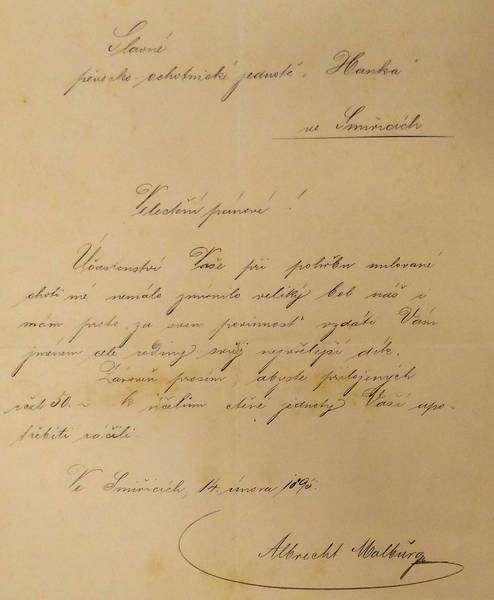 Slavné
pěvecko-ochotnické jednotě „Hanka“
ve Smiřicích
Velectění pánové!
Účastenství Vaše při pohřbu milované
choti mé nemálo zmírnilo veliký bol náš i
mám proto za svou povinnost vyzdáti Vám
jménem celé rodiny svůj nejvřelejší dík.
Zároveň prosím, abyste přiložených
50.- k účelům ctěné jednoty Vaší upo-
třebiti ráčili.
Ve Smiřicích, 14. února
Albrecht Malburg